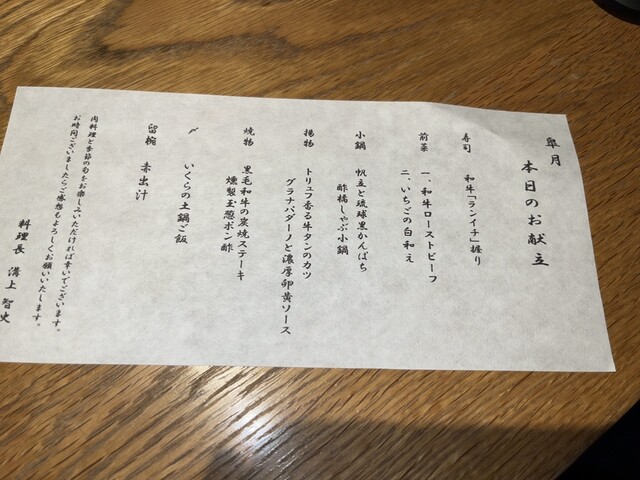 皐月
本日のお献立
寿司　和牛「ランイチ」握り
前菜　一、和牛ローストビーフ
二、いちごの白和え
小鍋　帆立と琉球黒かんぱち
酢橘しゃぶ小鍋
揚物　トリュフ香る牛タンのカツ
グラナパダーノと濃厚卵黄ソース
焼物　黒毛和牛の炭焼ステーキ
燻製玉葱ポン酢
〆　いくらの土鍋ご飯
留椀　赤出汁
肉料理と季節の旬をお楽しみいただければ幸いでございます。
お時間ございましたらご感想もよろしくお願いいたします。
料理長　溝上 智史